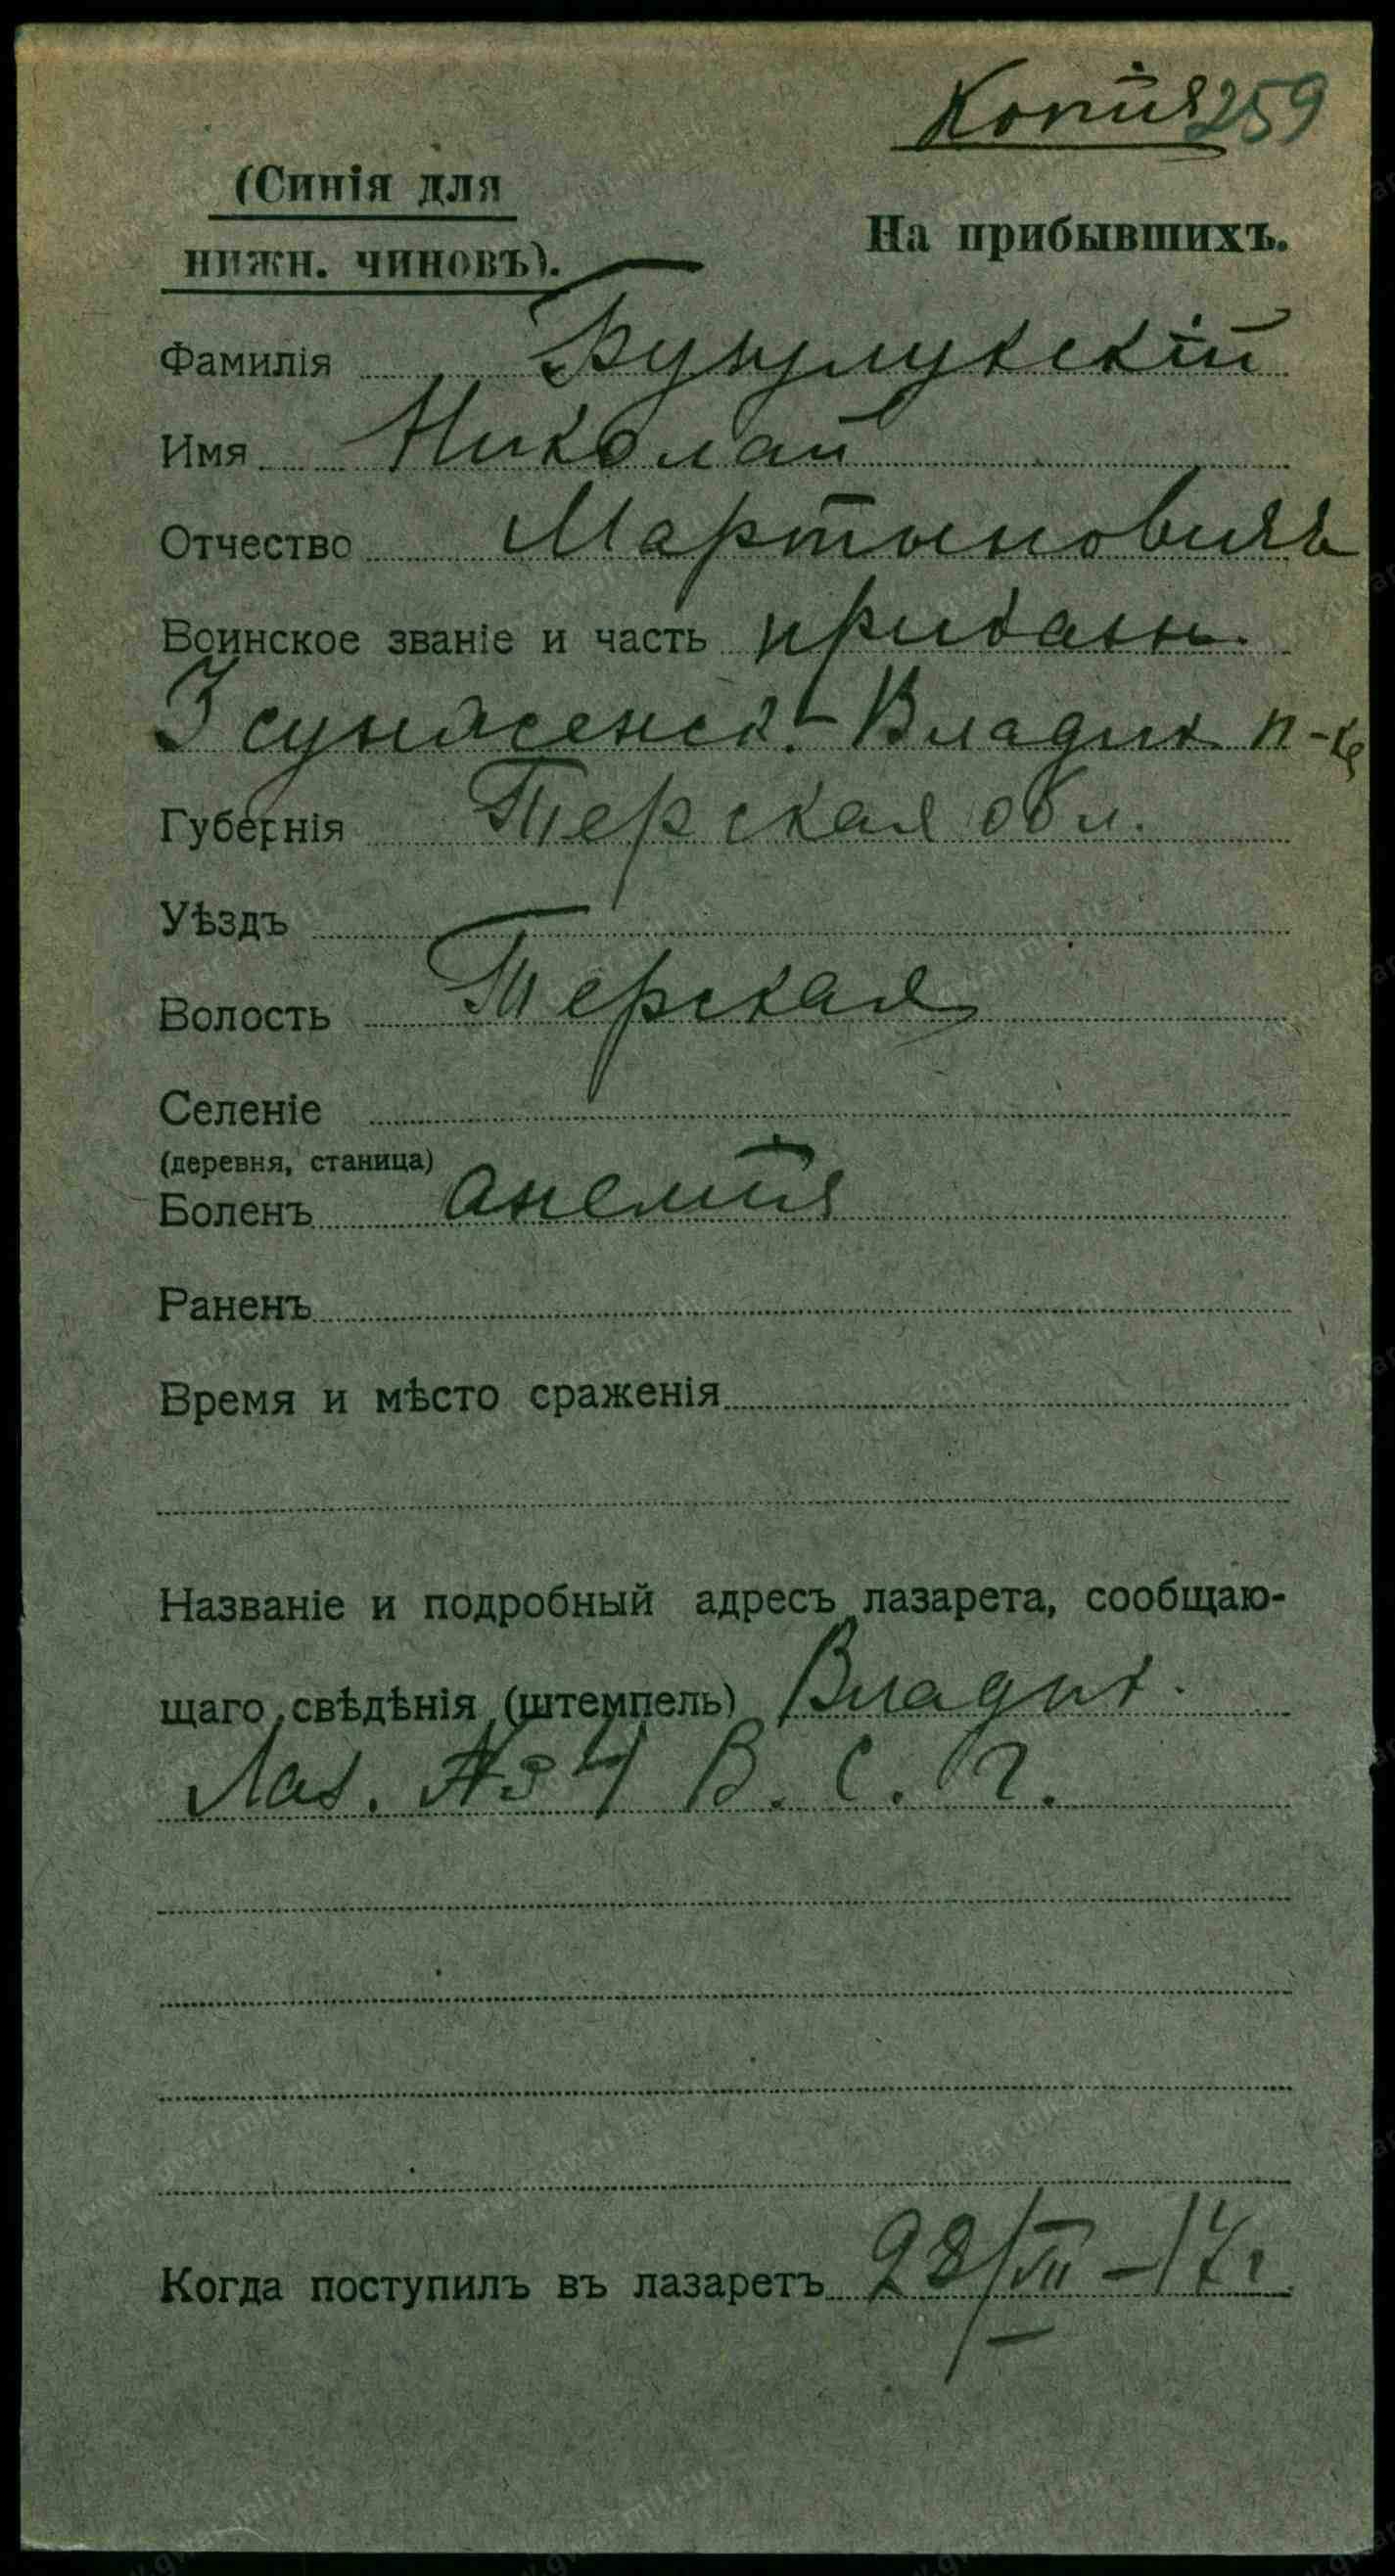 Копія 259
(Синія для
нижн. чиновъ).
На прибывшихъ.
Фамилія Бунулукскій
Имя Николай
Отчество Мартыновичъ
Воинское званіе и часть приказн.
3 сунженск.-Владик п-ка
Губернія Терская обл.
Уѣздъ
Волость Терская
Селеніе
(деревня, станица)
Боленъ анемія
Раненъ
Время и мѣсто сраженія
Названіе и подробный адресъ лазарета, сообщаю-
щаго свѣдѣнія (штемпель) Владик.
Лаз. № 4 В. С. Г.
Когда поступилъ въ лазаретъ 28/VII - 17 г